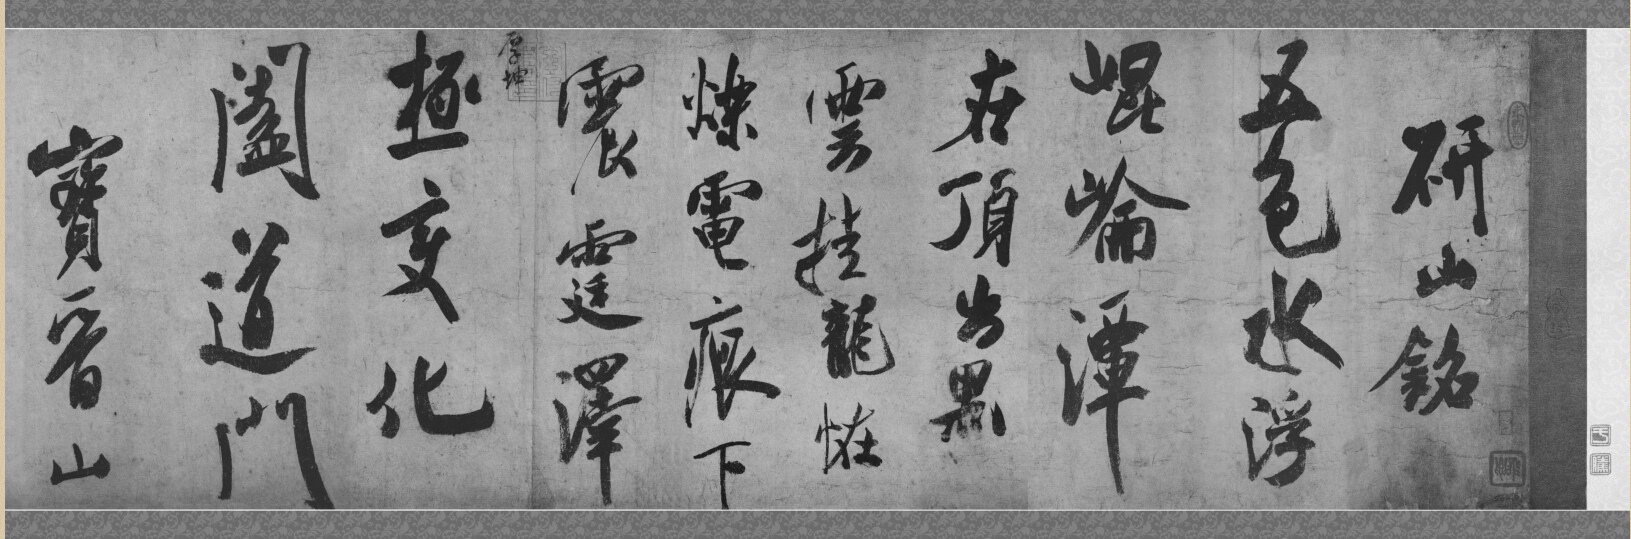 研山銘
五色水浮
崐崘潭
在頂出黑
雲挂龍恠
爍電痕下
震霆澤
厚坤
極變化
闔道門
寶晉山